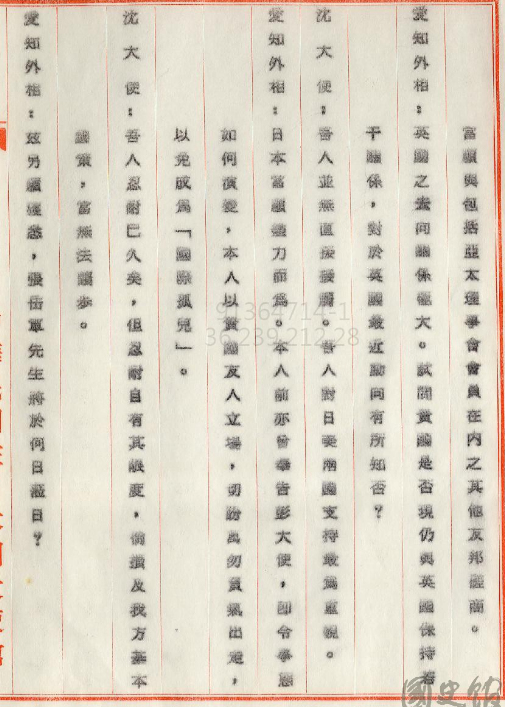 當願與包括亞太理事會會員在內之其他友邦磋商。
愛知外相：英國之去向關係極大。試問貴國是否現仍與英國保持若
干關係，對於英國最近動向有所知否？
沈大使：吾人並無直接接觸。吾人對日美兩國支持最為重視。
愛知外相：日本當願盡力而為。本人前亦曾奉告彭大使，即令事態
如何演變，本人以貴國友人立場，切盼貴勿負氣出走，
以免成為「國際孤兒」。
沈大使：吾人忍耐已久矣，但忍耐自有其限度，倘損及我方基本
國策，當無法讓步。
愛知外相：茲另願獲悉，張岳軍先生將於何日蒞日？
91364714-1
36.239.212.28
國史館